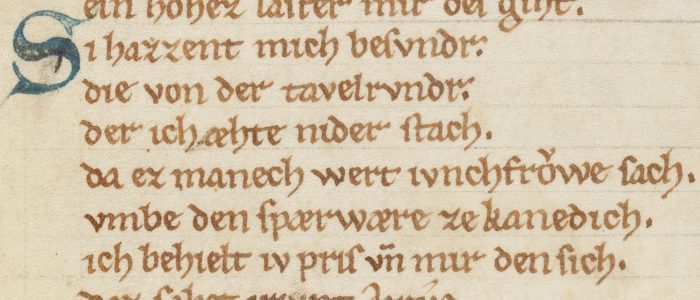 ein hohez laster mir des giht.
Si hazzent mich besvndr͛
die von der tavelrvndr͛
der ich æhte nider stach.
da ez manech wert ivnchfrŏwe sach.
vmbe den spærwære ze kanedich.
ich behielt iv pris vn̄ mir den sich.